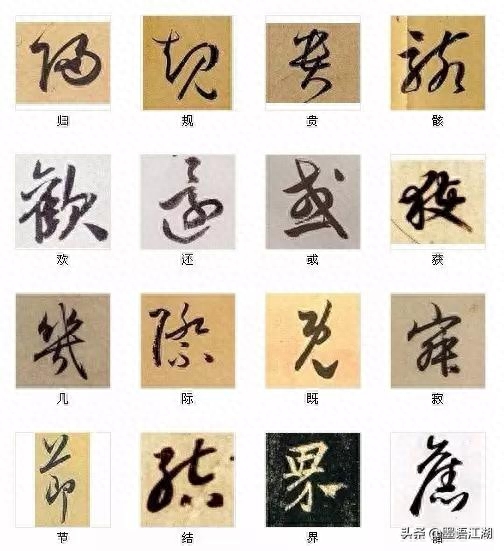 归 规 贵 骸
欢 还 或 获
几 际 既 寂
节 结 界
头条 @墨语江湖